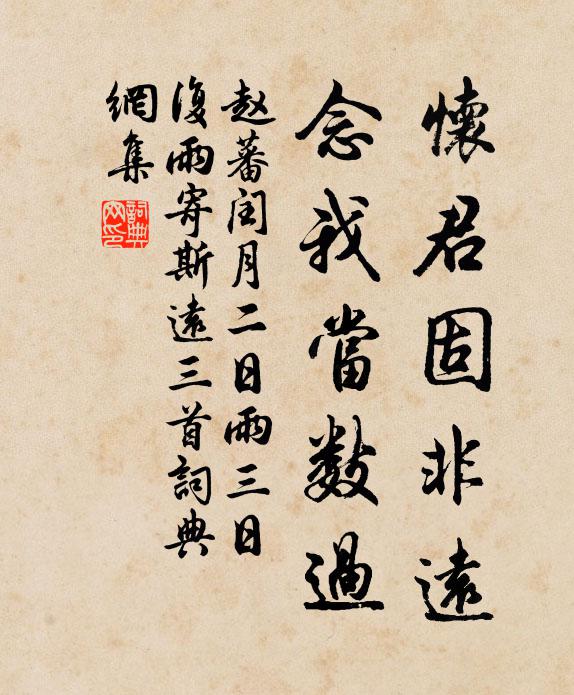 懷君固非遠
念我當數過
趙蕃閏月二日雨三日
復雨寄斯遠三首詞典
網集
詞典
网印